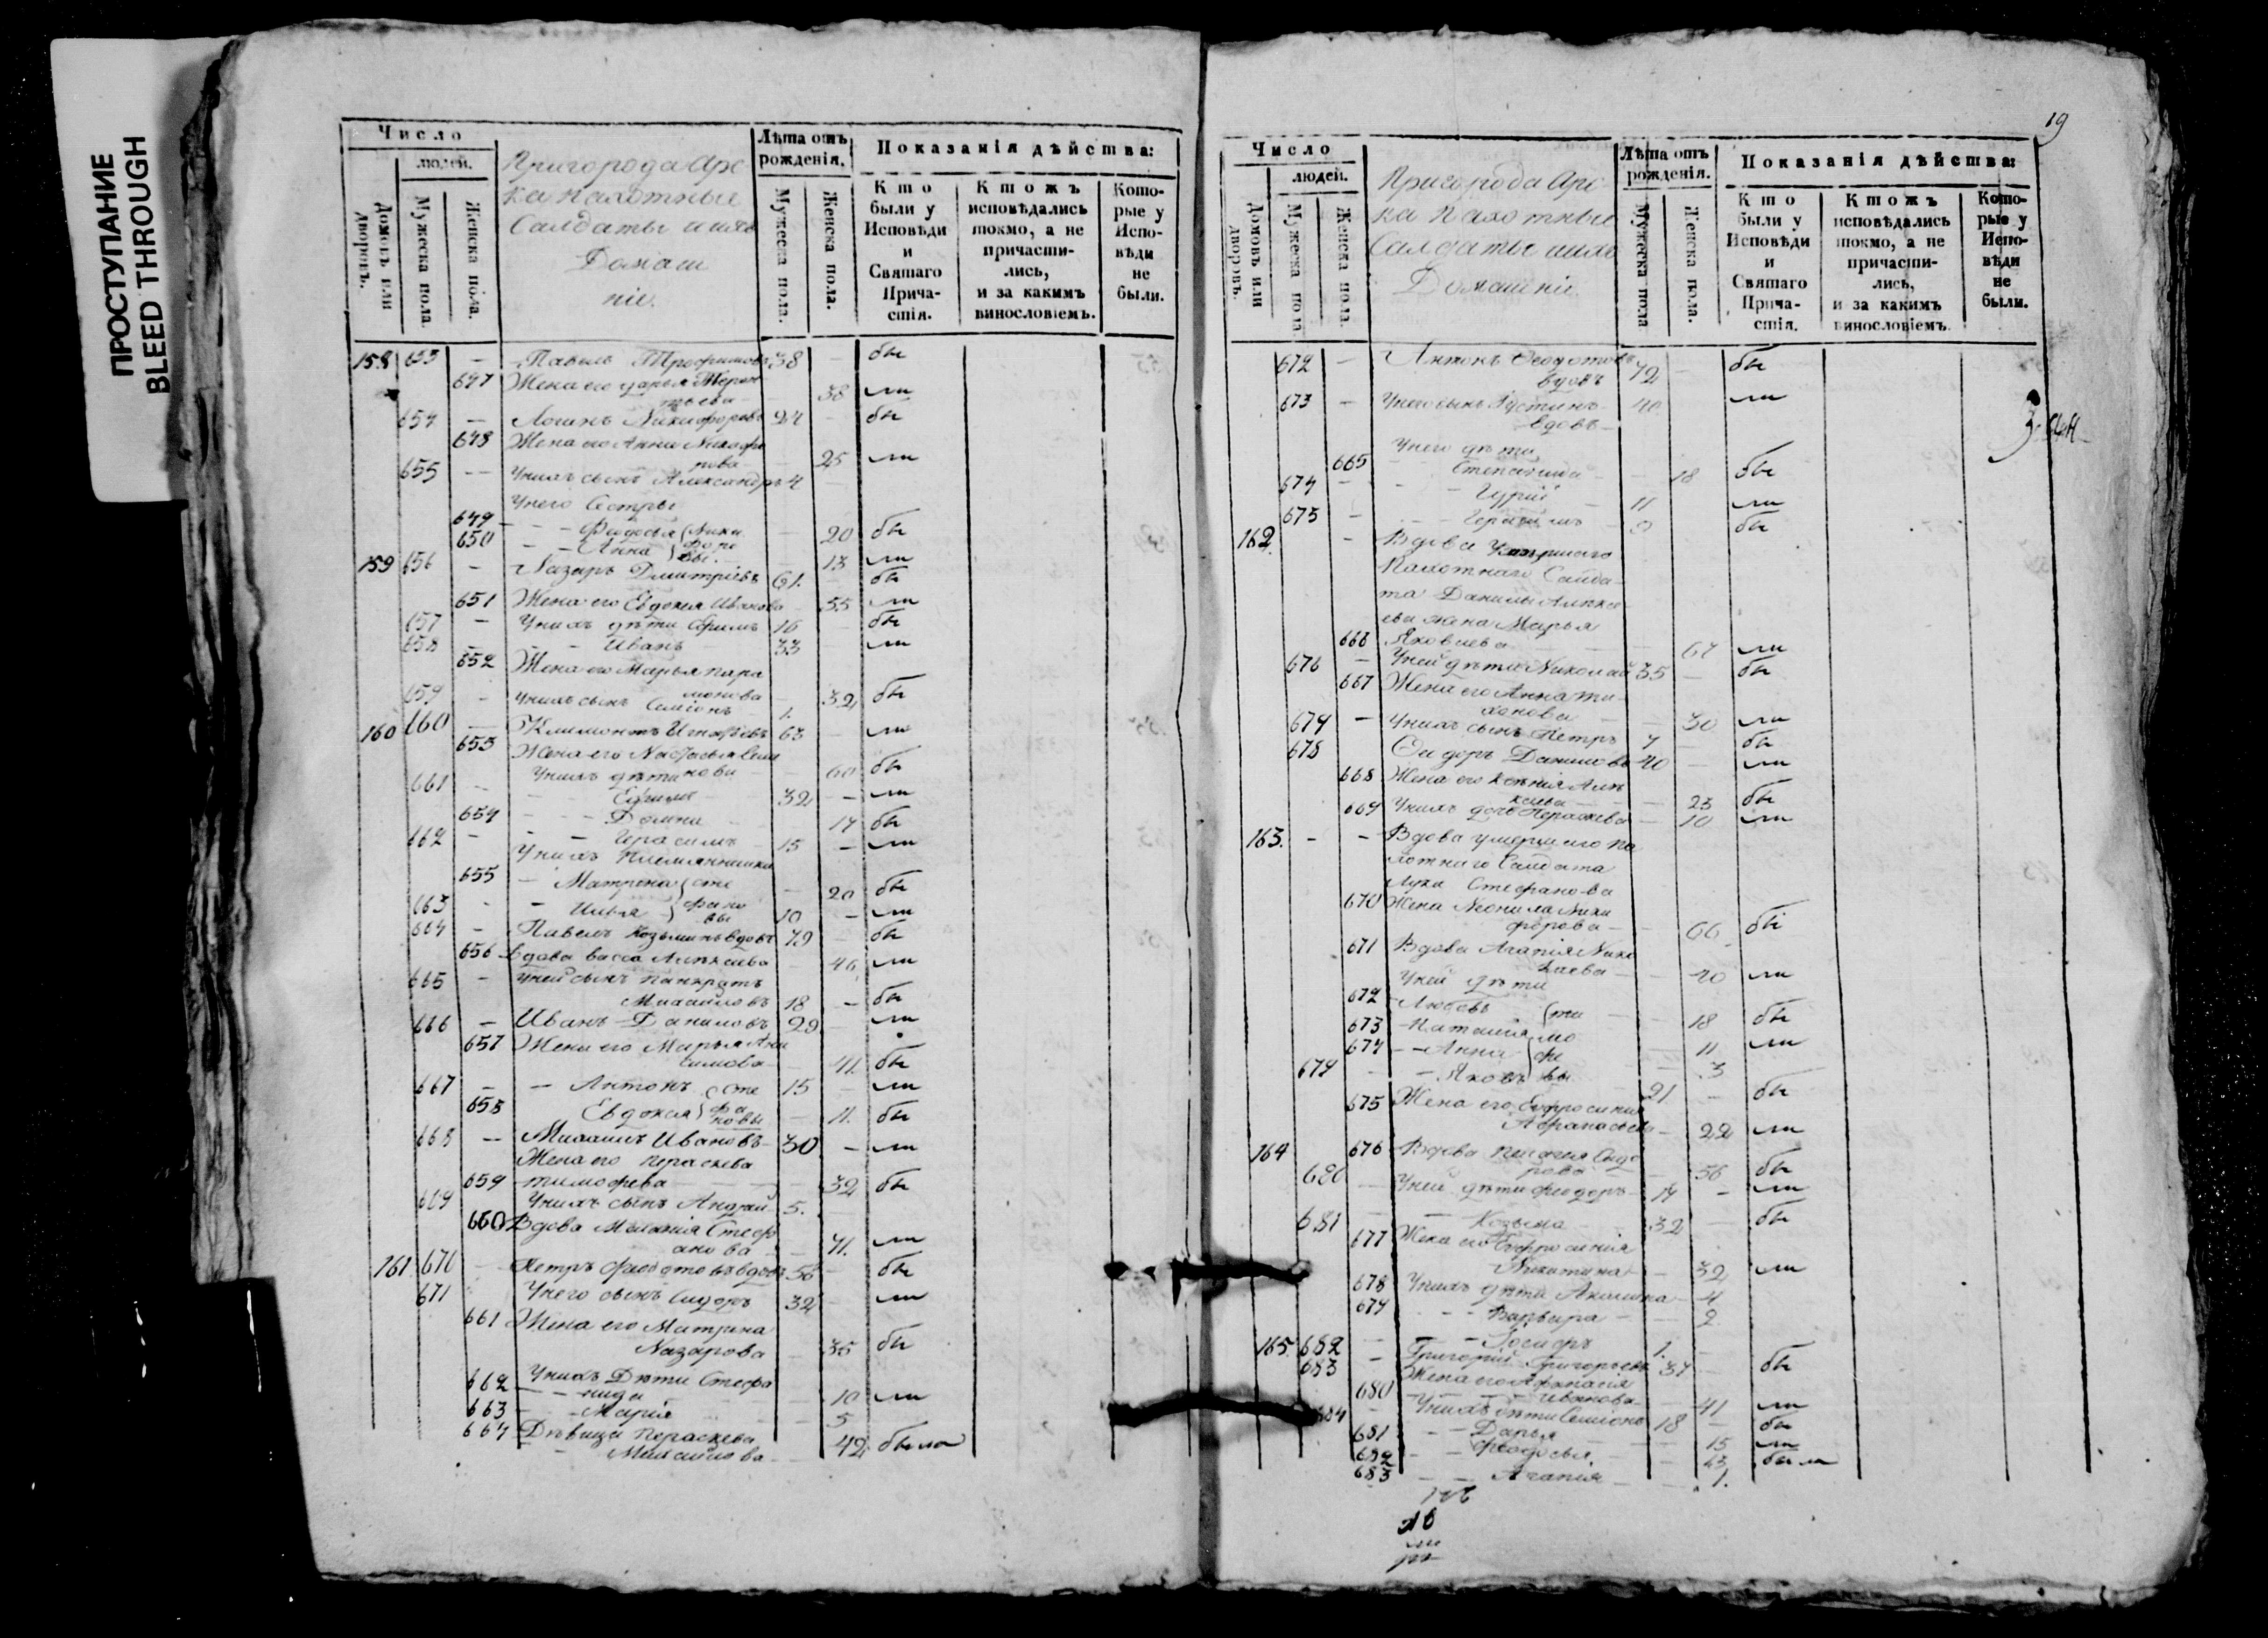 ПРОСТУПАНИЕ
BLEED THROUGH
Число
людей.
Домовъ или дворовъ.
Мужеска пола.
Женска пола.
Пригорода Арс
ка пахотные
Салдаты ихъ
Домаш
ніе.
Лѣта отъ рожденія.
Мужеска пола.
Женска пола.
Показанія дѣйства:
Кто были у Исповѣди и Святаго Прича-стія.
Ктожъ исповѣдались токмо, а не причасти-лись, и за какимъ винословіемъ.
Кото-рые у Испо-вѣди не были.
158 653 — Павелъ Трофимовъ 38 — бы
647 Жена его Дарья Терен
тьева — 38 ли
654 — Логинъ Никифоровъ 24 — бы
648 Жена его Анна Никифо
рова — 25 ли
655 — Унихъ сынъ Александръ 4 —
Унего Сестры
649 — Федосья Ники — 20 бы
650 — Анна форо вы. — 13 ли
159 656 — Назаръ Дмитріевъ 61. — бы
651 Жена его Евдокия Иванова — 55 ли
657 — Унихъ дѣти Ефимъ 16 бы
658 — Иванъ 33 ли
652 Жена его Марья Пара
монова — 32 бы
659 — Унихъ сынъ Семіонъ 1.
160 660 — Климонтъ Игнатьевъ 63 — ли
653 Жена его Настасья Семе
нова — 60 бы
Унихъ дѣти
661 — Ефимъ 32 — ли
654 — Домна — 17 бы
662 — Герасимъ 15 — ли
Унихъ племянники
655 — Матрена Сте — 20 бы
663 — Илья фано вы 10 — ли
664 — Павелъ Козьминъ вдовъ 79 — бы
656 Вдова Васса Алексеева — 46 ли
665 — Уней сынъ Панкратъ
Михаиловъ 18 — бы
666 — Иванъ Даниловъ 29 — ли
657 Жена его Марья Ани
симова — 41. бы
667 — Антонъ Сте 15 — ли
658 Евдокия фа новы — 11. бы
668 — Михаилъ Ивановъ 30 — ли
Жена его Параскева
659 Тимофева — 32 бы
669 Унихъ сынъ Андрей 5.
660 Вдова Меланія Стеф
анова — 71. ли
161 670 — Петръ Феодотовъ вдовъ 56 — бы
671 Унего сынъ Сидоръ 32 — ли
661 Жена его Матрена
Назарова — 35 бы
Унихъ Дѣти Стефа
662 — нида — 10 ли
663 — Марія — 5
664 Дѣвица Параскева
Михаилова — 42 была
19
Число
людей.
Домовъ или дворовъ.
Мужеска пола.
Женска пола.
Пригорода Арс
ка пахотные
Салдаты ихъ
Домашніе
Лѣта отъ рожденія.
Мужеска пола
Женска пола.
Показанія дѣйства:
Кто были у Исповѣди и Святаго Прича-стія.
Ктожъ исповѣдались токмо, а не причасти-лись, и за какимъ винословіемъ.
Кото-рые у Испо-вѣди не были.
672 — Антонъ Феодотовъ
вдовъ 72 — бы
673 — Унего сынъ Устинъ 40 ли
вдовъ
Унего дѣти
665 Степанида — 18 бы
674 — Гурій 11 ли
675 — Герасимъ 9 бы
162. — Вдова Умершаго
Пахотнаго Салда
та Данилы Алексе
ева жена Марья
666 Яковлева — 67 ли
676 — Уней дѣти Николай 35 — бы
667 Жена его Анна Ти
хонова — 30 ли
677 — Унихъ сынъ Петръ 7 бы
678 Сидоръ Даниловъ 40 — ли
668 Жена его Ксенія Алек
сеева — 23 бы
669 Унихъ дочь Параскева — 10 ли
163. — — Вдова умершаго Па
хотнаго Салдата
Луки Стефанова
670 Жена Неонила Ники
форова — 66 бы
671 Вдова Агапія Нико
лаева — 40 ли
Уней дѣти
672 Любовь Ти — 18 бы
673 Наталия мо — 11 ли
674 — Анна фе — 3
679 — Яковъ вы 21 — бы
675 Жена его Евфросиния
Афанасьева — 22 ли
164 676 Вдова Пелагея Сидо
рова — 56 бы
680 — Уней дѣти Феодоръ 14 — ли
681 — Козьма 32 — бы
677 Жена его Евфросиния
Никитина — 32 ли
678 Унихъ дѣти Акилина — 4
679 — Варвара — 2
165 682 — Іосифъ 1. —
683 — Григорій Григорьевъ 37 бы
Жена его Афанасія
680 Иванова — 41 ли
684 — Унихъ дѣти Семіонъ 18 — бы
681 — Дарья — 15 ли
682 — Феодосья — 13 была
683 — Агапія — 1.